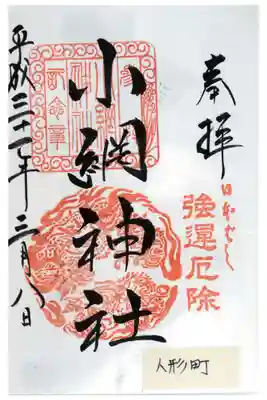 奉拝
日本ばし
強運厄除
小網神社
平成三十一年三月八日
人形町